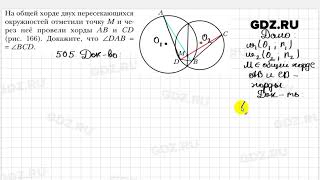 На общей хорде двух пересекающихся
окружностей отметили точку M и че-
рез неё провели хорды AB и CD
(рис. 166). Докажите, что ∠DAB =
= ∠BCD.
505 Док-во
A
C
O₁
O₂
M
D
B
GDZ.RU
Дано:
ω₁(O₁, r₁)
ω₂(O₂, r₂)
M ∈ общей хорде
AB и CD -
хорды
Док-ть
GDZ.RU